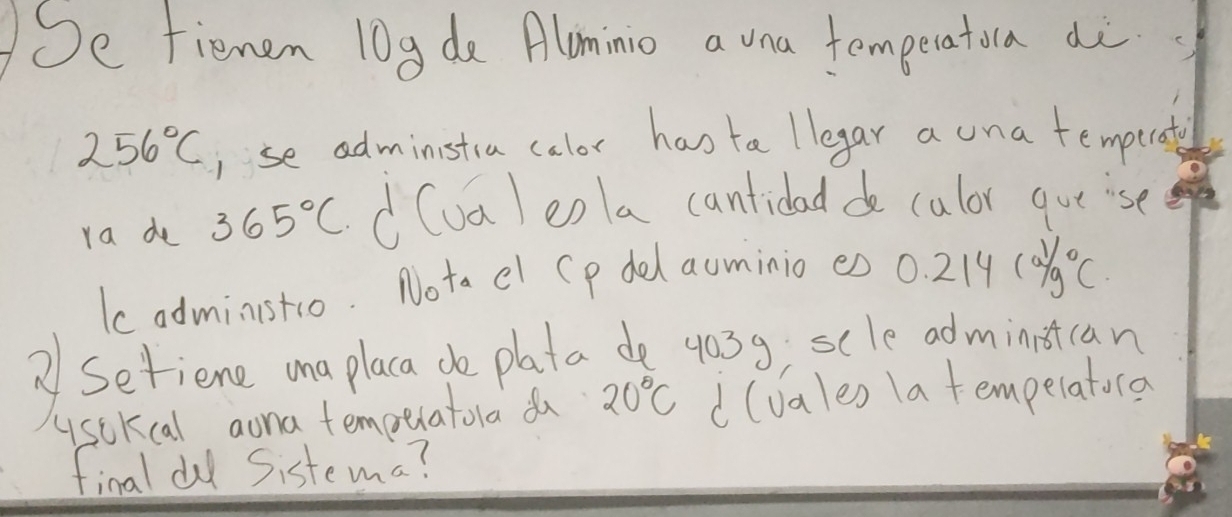 Se tienen 10g de Aluminio a una temperatura de
256°C, se administra calor hasta llegar a una temperatu
ra de 365°C. ¿Cual es la cantidad de calor que se
le administro. Nota el Cp del auminio es 0.214 cal/g°C.
2) Se tiene una placa de plata de 403g, se le administran
450Kcal a una temperatura de 20°C ¿Cual es la temperatura
final del Sistema?